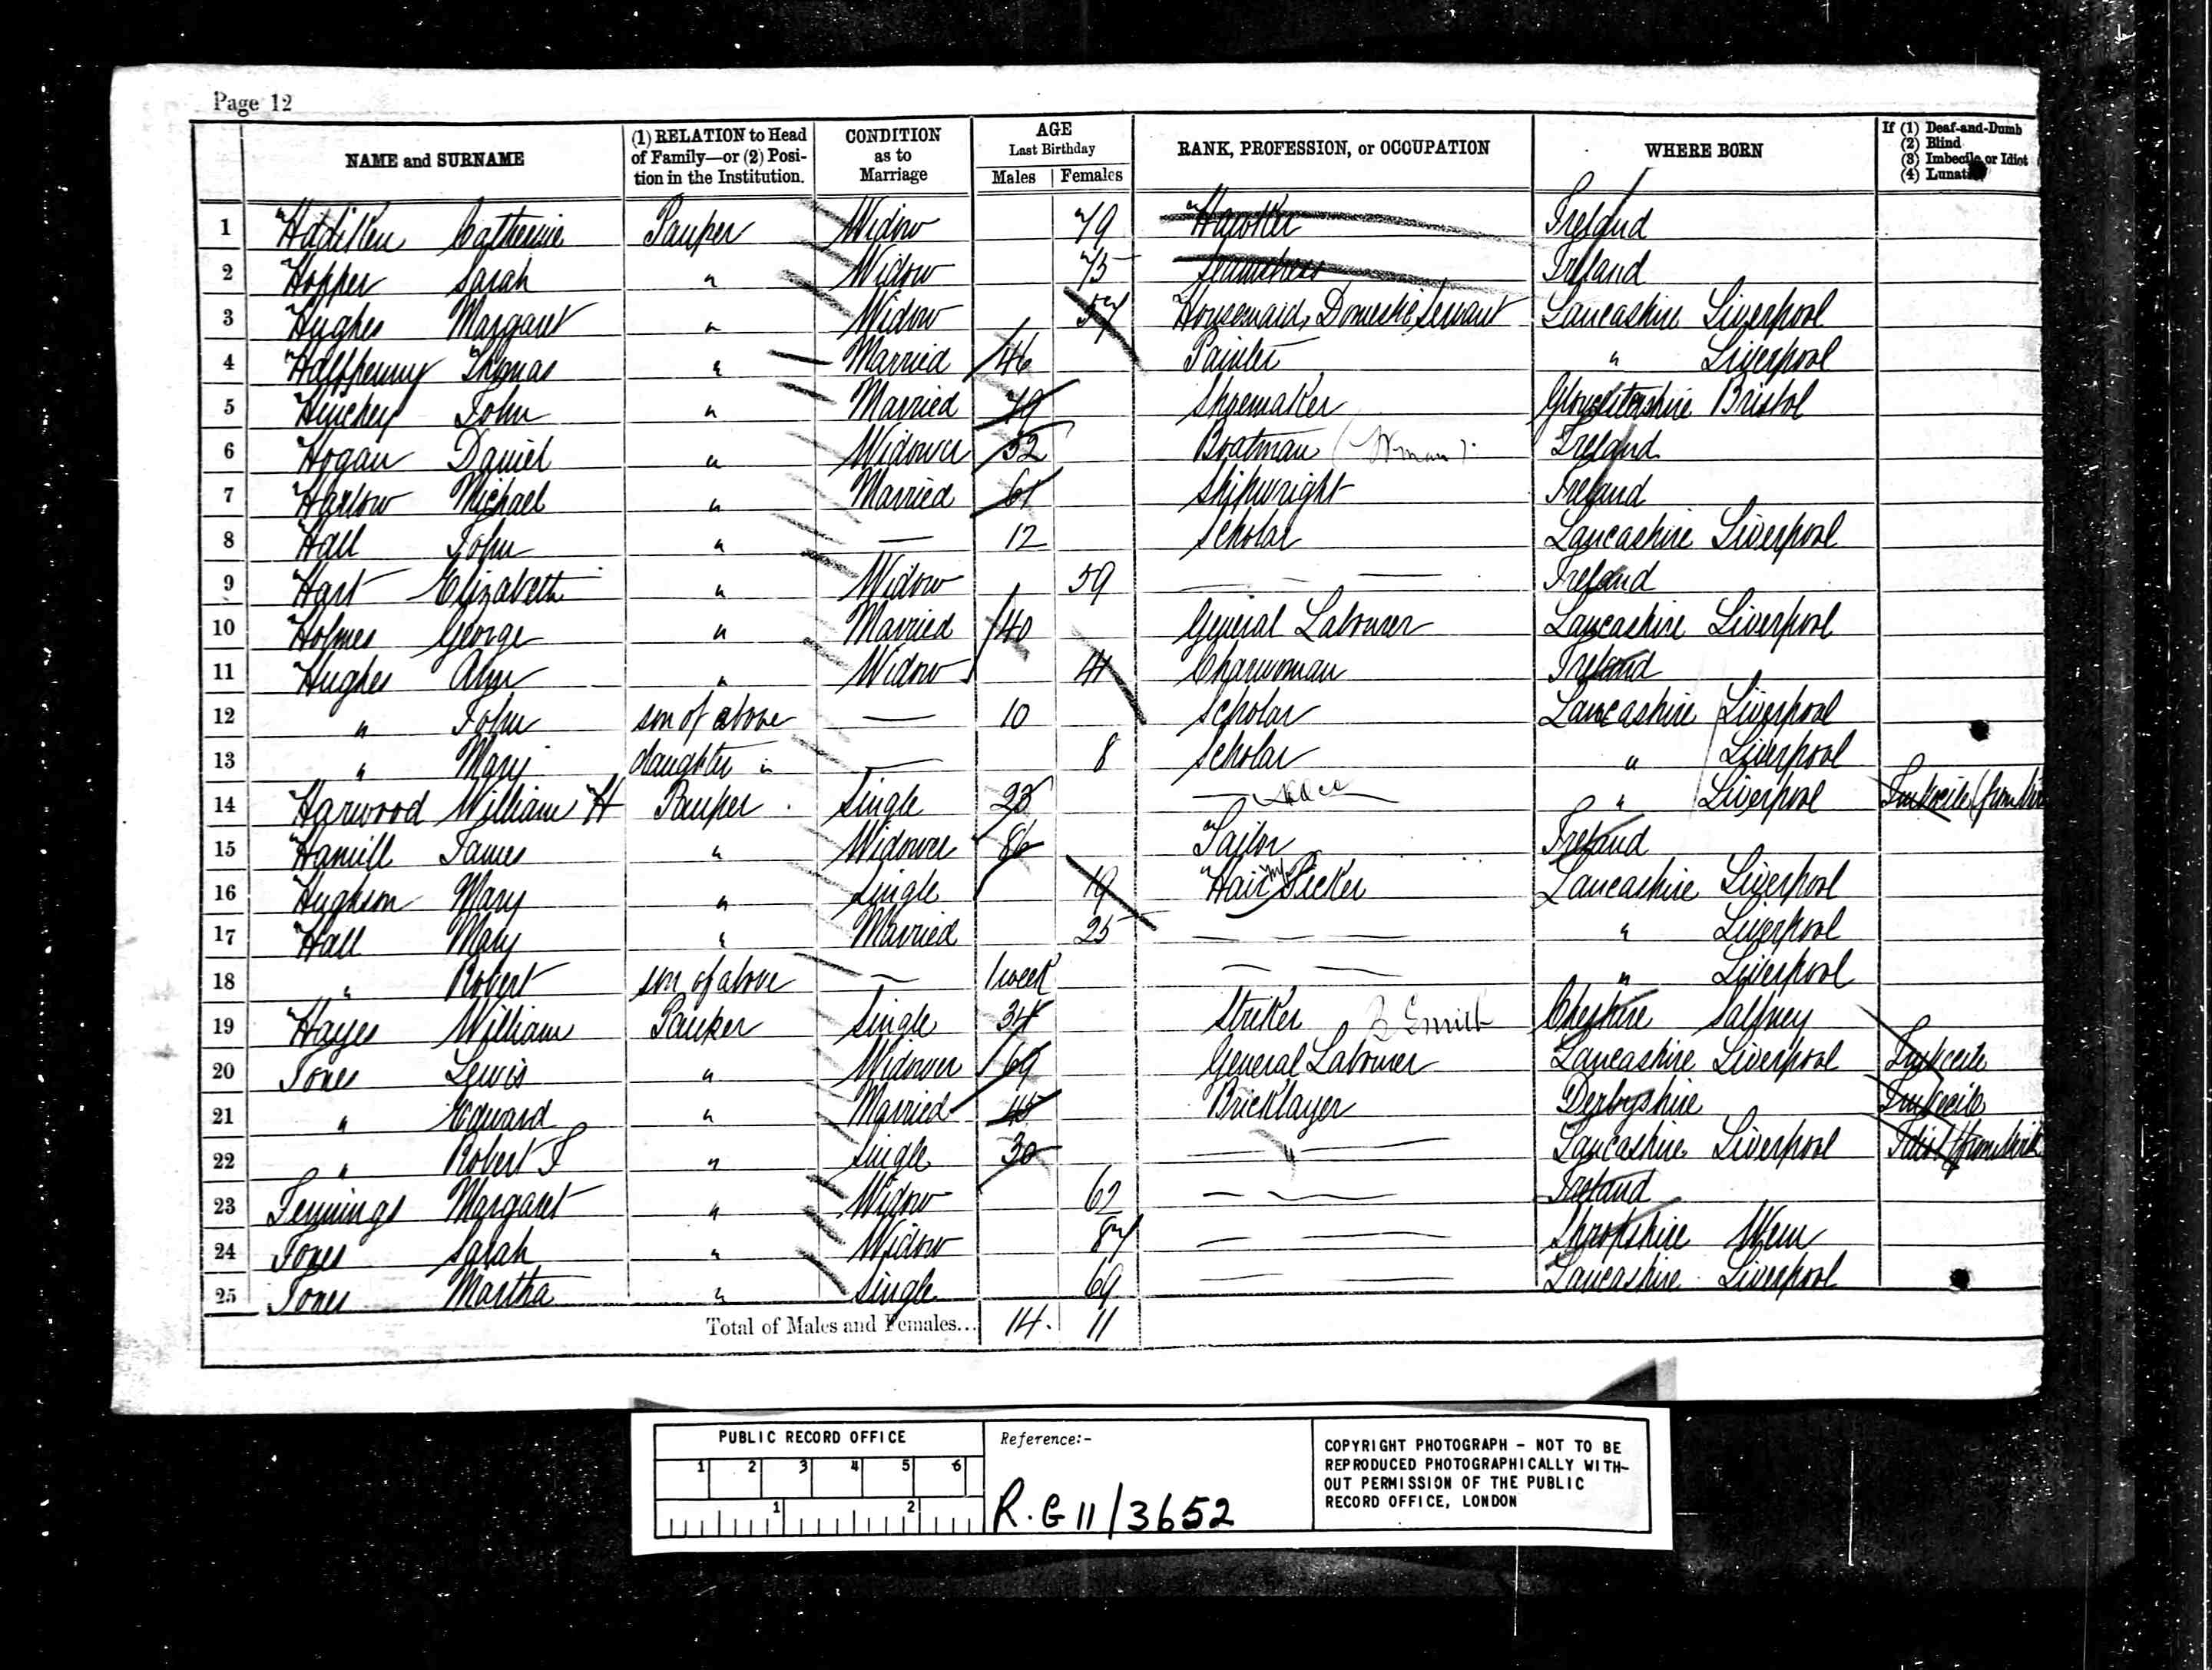 Page 12
NAME and SURNAME (1) RELATION to Head of Family—or (2) Position in the Institution. CONDITION as to Marriage AGE Last Birthday Males Females RANK, PROFESSION, or OCCUPATION WHERE BORN If (1) Deaf-and-Dumb (2) Blind (3) Imbecile or Idiot (4) Lunatic
1 Catherine Pauper Widow 79 Hawker Ireland
2 Hopper Sarah " Widow 75 Seamstress Ireland
3 Hughes Margaret " Widow 57 Housemaid, Domestic Servant Lancashire Liverpool
4 Halfpenny Thomas " Married 46 Painter " Liverpool
5 Hinchey John " Married 79 Shoemaker Gloucestershire Bristol
6 Hogan Daniel " Widower 52 Boatman Ireland
7 Harlow Michael " Married 61 Shipwright Ireland
8 Hall John " — 12 Scholar Lancashire Liverpool
9 Hart Elizabeth " Widow 59 — — Ireland
10 Holmes George " Married 40 General Labourer Lancashire Liverpool
11 Hughes Ann " Widow 41 Charwoman Ireland
12 " John son of above — 10 Scholar Lancashire Liverpool
13 " Mary daughter " — 8 Scholar " Liverpool
14 Harwood William H Pauper Single 23 — " Liverpool Imbecile (from
15 Hamill James " Widower 86 Tailor Ireland
16 Hughson Mary " Single 19 Hair Picker Lancashire Liverpool
17 Hall Mary " Married 25 — — — " Liverpool
18 " Robert son of above — 1 week — — " Liverpool
19 Hayes William Pauper Single 34 Striker Cheshire Saltney
20 Jones Lewis " Widower 69 General Labourer Lancashire Liverpool Imbecile
21 " Edward " Married 45 Bricklayer Derbyshire Imbecile
22 " Robert " Single 30 — " — Lancashire Liverpool Idiot (from birth
23 Jennings Margaret " Widow 62 — — Ireland
24 Jones Sarah " Widow 87 — — Shropshire Wem
25 Jones Martha " Single 69 — — Lancashire Liverpool
Total of Males and Females... 14. 11
PUBLIC RECORD OFFICE
1 2 3 4 5 6
1 2
Reference:-
R.G 11/3652
COPYRIGHT PHOTOGRAPH – NOT TO BE
REPRODUCED PHOTOGRAPHICALLY WITH-
OUT PERMISSION OF THE PUBLIC
RECORD OFFICE, LONDON